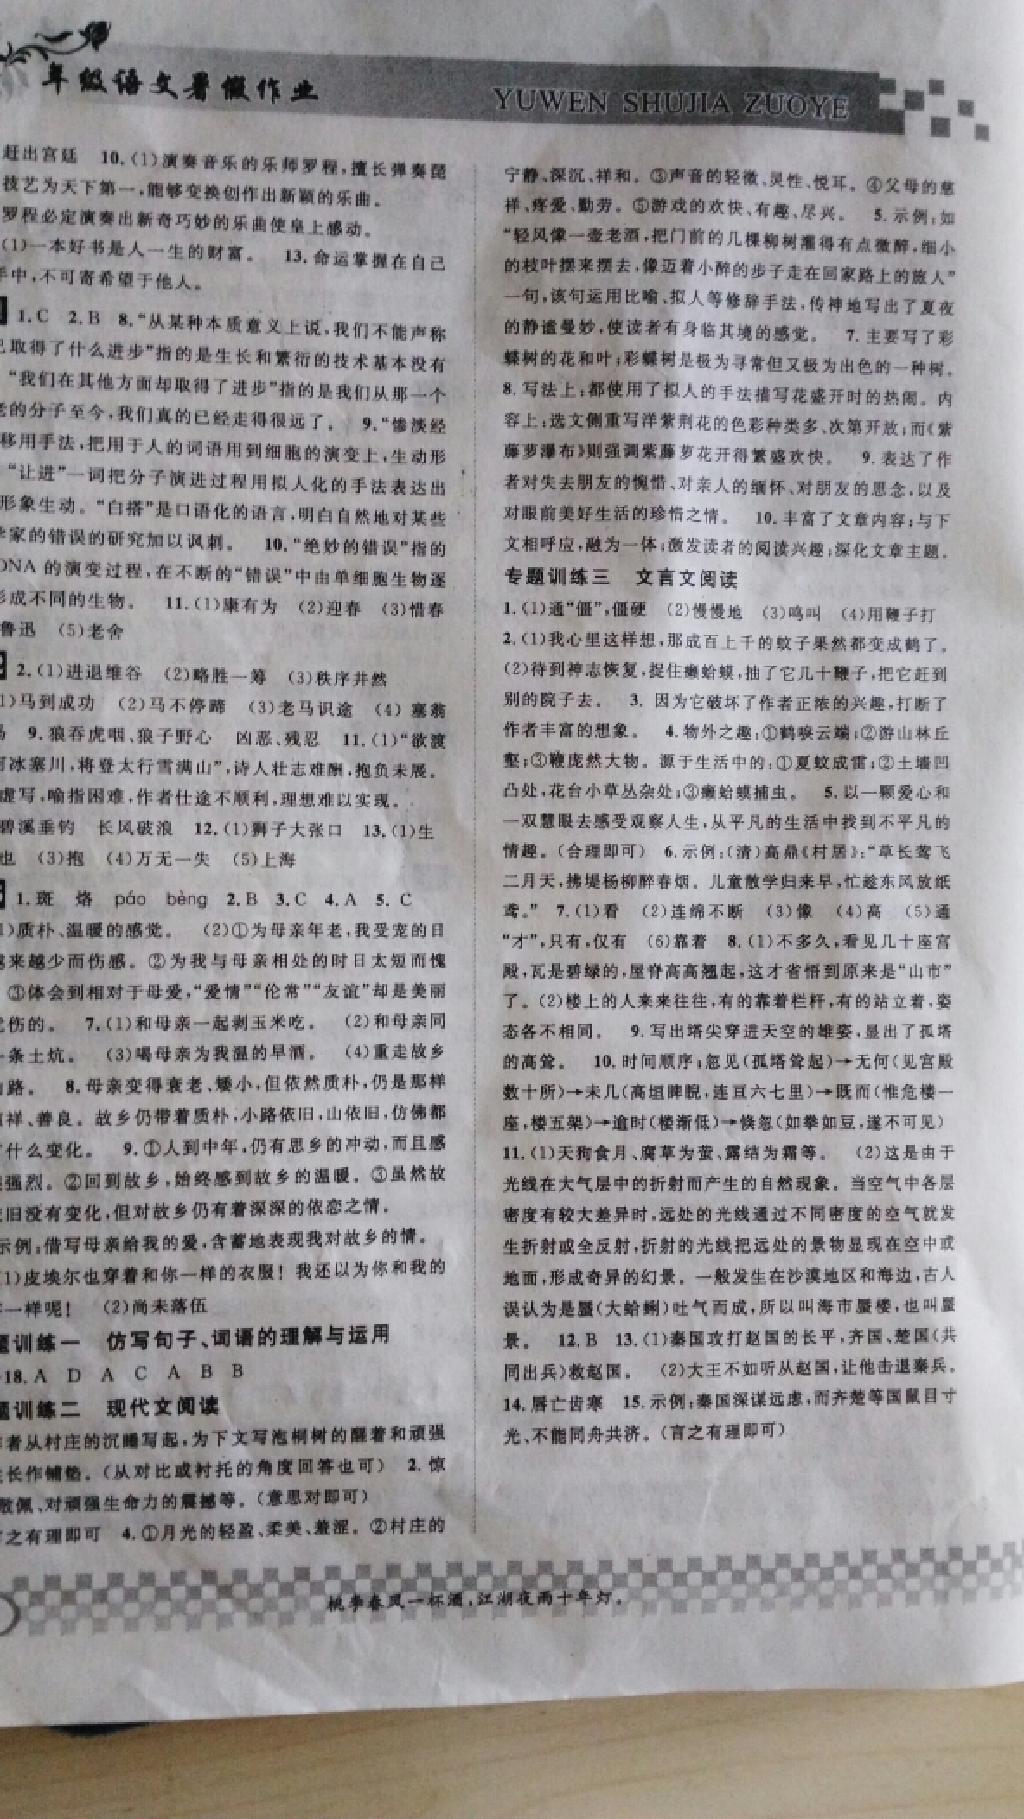 年级语文暑假作业
YUWEN SHUJIA ZUOYE
赶出宫廷 10.(1)演奏音乐的乐师罗程,擅长弹奏琵
技艺为天下第一,能够变换创作出新颖的乐曲。
罗程必定演奏出新奇巧妙的乐曲使皇上感动。
(1)一本好书是人一生的财富。 13.命运掌握在自己
手中,不可寄希望于他人。
1.C 2.B 8.“从某种本质意义上说,我们不能声称
已取得了什么进步”指的是生长和繁衍的技术基本没有
“我们在其他方面却取得了进步”指的是我们从那一个
老的分子至今,我们真的已经走得很远了。 9.“惨淡经
移用手法,把用于人的词语用到细胞的演变上,生动形
“让进”一词把分子演进过程用拟人化的手法表达出
形象生动。“白搭”是口语化的语言,明白自然地对某些
学家的错误的研究加以讽刺。 10.“绝妙的错误”指的
DNA的演变过程,在不断的“错误”中由单细胞生物逐
形成不同的生物。 11.(1)康有为 (2)迎春 (3)惜春
鲁迅 (5)老舍
2.(1)进退维谷 (2)略胜一筹 (3)秩序井然
1)马到成功 (2)马不停蹄 (3)老马识途 (4)塞翁
马 9.狼吞虎咽、狼子野心 凶恶、残忍 11.(1)“欲渡
河冰塞川,将登太行雪满山”,诗人壮志难酬,抱负未展。
虚写,喻指困难,作者仕途不顺利,理想难以实现。
碧溪垂钓 长风破浪 12.(1)狮子大张口 13.(1)生
也 (3)抱 (4)万无一失 (5)上海
1.斑 烙 páo bèng 2.B 3.C 4.A 5.C
1)质朴、温暖的感觉。 (2)①为母亲年老,我受宠的日
越来越少而伤感。②为我与母亲相处的时日太短而愧
③体会到相对于母爱,“爱情”“伦常”“友谊”却是美丽
忧伤的。 7.(1)和母亲一起剥玉米吃。 (2)和母亲同
一条土炕。 (3)喝母亲为我温的早酒。 (4)重走故乡
山路。 8.母亲变得衰老、矮小,但依然质朴,仍是那样
慈祥、善良。故乡仍带着质朴,小路依旧,山依旧,仿佛都
有什么变化。 9.①人到中年,仍有思乡的冲动,而且感
强烈。②回到故乡,始终感到故乡的温暖。③虽然故
依旧没有变化,但对故乡仍有着深深的依恋之情。
示例:借写母亲给我的爱,含蓄地表现我对故乡的情。
(1)皮埃尔也穿着和你一样的衣服!我还以为你和我的
一样呢! (2)尚未落伍
题训练一 仿写句子、词语的理解与运用
18.A D A C A B B
题训练二 现代文阅读
作者从村庄的沉睡写起,为下文写泡桐树的醒着和顽强
生长作铺垫。(从对比或衬托的角度回答也可) 2.惊
敬佩、对顽强生命力的震撼等。(意思对即可)
言之有理即可 4.①月光的轻盈、柔美、羞涩。②村庄的
宁静、深沉、祥和。③声音的轻微、灵性、悦耳。④父母的慈
祥、疼爱、勤劳。⑤游戏的欢快、有趣、尽兴。 5.示例:如
“轻风像一壶老酒,把门前的几棵柳树灌得有点微醉,细小
的枝叶摆来摆去,像迈着小醉的步子走在回家路上的旅人”
一句,该句运用比喻、拟人等修辞手法,传神地写出了夏夜
的静谧曼妙,使读者有身临其境的感觉。 7.主要写了彩
蝶树的花和叶;彩蝶树是极为寻常但又极为出色的一种树。
8.写法上:都使用了拟人的手法描写花盛开时的热闹。内
容上:选文侧重写洋紫荆花的色彩种类多、次第开放;而《紫
藤萝瀑布》则强调紫藤萝花开得繁盛欢快。 9.表达了作
者对失去朋友的愧惜、对亲人的缅怀、对朋友的思念,以及
对眼前美好生活的珍惜之情。 10.丰富了文章内容;与下
文相呼应,融为一体;激发读者的阅读兴趣;深化文章主题。
专题训练三 文言文阅读
1.(1)通“僵”,僵硬 (2)慢慢地 (3)鸣叫 (4)用鞭子打
2.(1)我心里这样想,那成百上千的蚊子果然都变成鹤了。
(2)待到神志恢复,捉住癞蛤蟆,抽了它几十鞭子,把它赶到
别的院子去。 3.因为它破坏了作者正浓的兴趣,打断了
作者丰富的想象。 4.物外之趣:①鹤唳云端;②游山林丘
壑;③鞭庞然大物。源于生活中的:①夏蚊成雷;②土墙凹
凸处,花台小草丛杂处;③癞蛤蟆捕虫。 5.以一颗爱心和
一双慧眼去感受观察人生,从平凡的生活中找到不平凡的
情趣。(合理即可) 6.示例:(清)高鼎《村居》:“草长莺飞
二月天,拂堤杨柳醉春烟。儿童散学归来早,忙趁东风放纸
鸢。” 7.(1)看 (2)连绵不断 (3)像 (4)高 (5)通
“才”,只有,仅有 (6)靠着 8.(1)不多久,看见几十座宫
殿,瓦是碧绿的,屋脊高高翘起,这才省悟到原来是“山市”
了。(2)楼上的人来来往往,有的靠着栏杆,有的站立着,姿
态各不相同。 9.写出塔尖穿进天空的雄姿,显出了孤塔
的高耸。 10.时间顺序:忽见(孤塔耸起)→无何(见宫殿
数十所)→未几(高垣睥睨,连亘六七里)→既而(惟危楼一
座,楼五架)→逾时(楼渐低)→倏忽(如拳如豆,遂不可见)
11.(1)天狗食月、腐草为萤、露结为霜等。 (2)这是由于
光线在大气层中的折射而产生的自然现象。当空气中各层
密度有较大差异时,远处的光线通过不同密度的空气就发
生折射或全反射,折射的光线把远处的景物显现在空中或
地面,形成奇异的幻景。一般发生在沙漠地区和海边,古人
误认为是蜃(大蛤蜊)吐气而成,所以叫海市蜃楼,也叫蜃
景。 12.B 13.(1)秦国攻打赵国的长平,齐国、楚国(共
同出兵)救赵国。 (2)大王不如听从赵国,让他击退秦兵。
14.唇亡齿寒 15.示例:秦国深谋远虑,而齐楚等国鼠目寸
光、不能同舟共济。(言之有理即可)
桃李春风一杯酒,江湖夜雨十年灯。